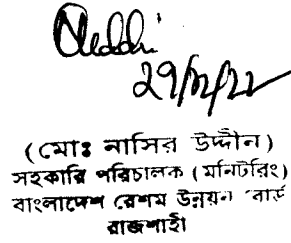 ২৭/১২/২২
(মোঃ নাসির উদ্দীন)
সহকারি পরিচালক (মনিটরিং)
বাংলাদেশ রেশম উন্নয়ন বোর্ড
রাজশাহী